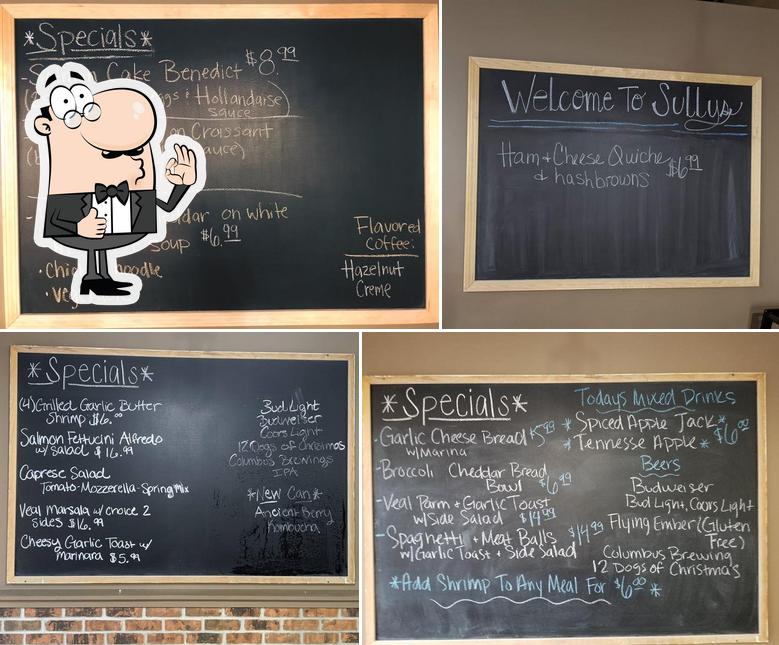 *Specials*
Cake Benedict $8.99
gs & Hollandaise
sauce
on Croissant
auce)
dar on white
soup $6.99
Flavored
Coffee:
Hazelnut
Creme
Welcome To Sullys
Ham & Cheese Quiche $6.99
& hashbrowns
*Specials*
(4) Grilled Garlic Butter
Shrimp $6.00
Salmon Fettucini Alfredo
w/salad $16.99
Caprese Salad
Tomato-Mozzerella-Spring mix
Veal Marsala w/choice 2
sides $16.99
Cheesy Garlic Toast w/
marinara $5.99
Bud Light
Budweiser
Coors Light
12 Dogs of Christmas
Columbus Brewings
IPA
*New Can*
Ancient Berry
Kombucha
*Specials*
-Garlic Cheese Bread $5.99
w/Marina
-Broccoli Cheddar Bread
Bowl $6.99
-Veal Parm + Garlic Toast
w/Side Salad $14.99
-Spaghetti + Meat Balls $14.99
w/Garlic Toast + Side Salad
Todays Mixed Drinks
*Spiced Apple Jack* $6.00
*Tennesse Apple*
Beers
Budweiser
Bud Light, Coors Light
Flying Ember (Gluten
Free)
Columbus Brewing
12 Dogs of Christma's
*Add Shrimp To Any Meal For $6.00*